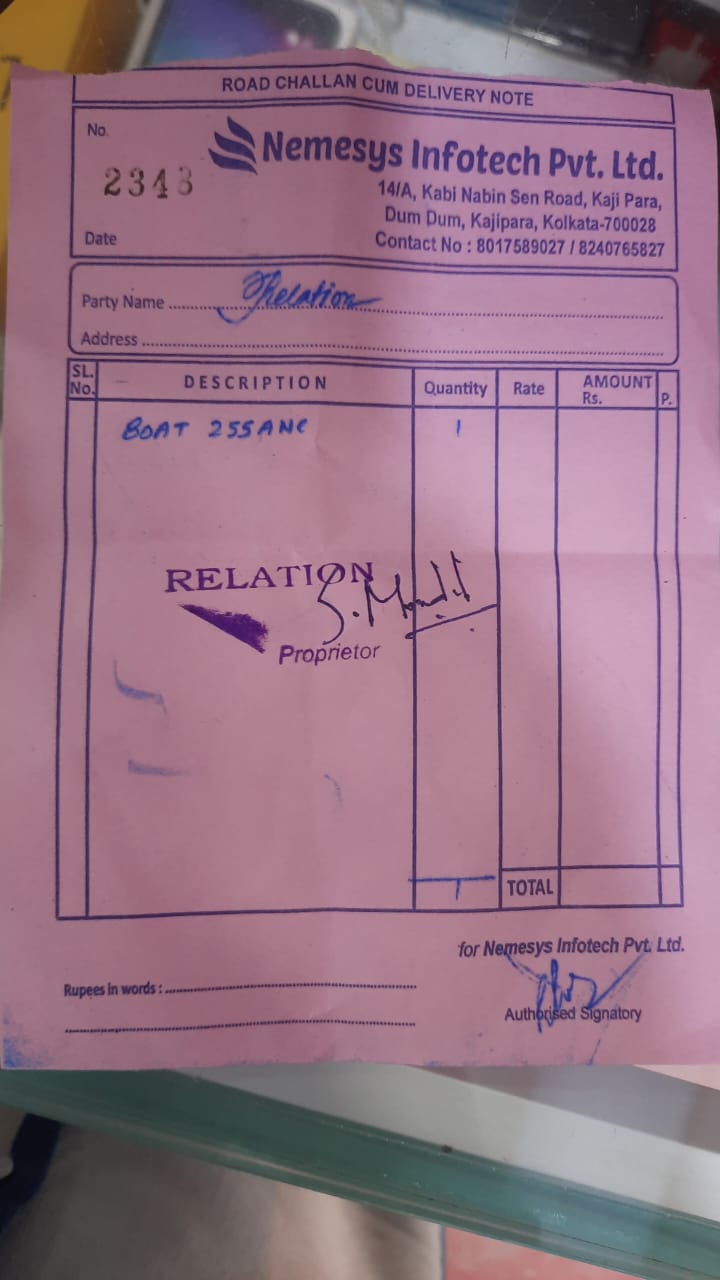 ROAD CHALLAN CUM DELIVERY NOTE
No.
2343
Nemesys Infotech Pvt. Ltd.
14/A, Kabi Nabin Sen Road, Kaji Para,
Dum Dum, Kajipara, Kolkata-700028
Date
Contact No : 8017589027 / 8240765827
Party Name Relation
Address
SL. No. DESCRIPTION Quantity Rate AMOUNT Rs. P.
BOAT 255 ANC 1
RELATION
Proprietor
1 TOTAL
for Nemesys Infotech Pvt. Ltd.
Rupees in words :
Authorised Signatory